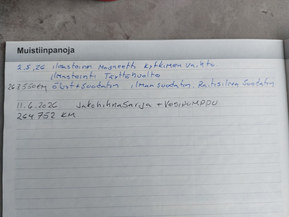 Muistiinpanoja
5.5.26 ilmastoinnin Magneetti kytkimen vaihto
ilmastointi Täyttöhuolto
263500KM öljyt+suodatin, ilmansuodatin, Raitisilma suodatin
11.6.2026 Jakohihnasarja + VesipUMPPU
264 752 KM